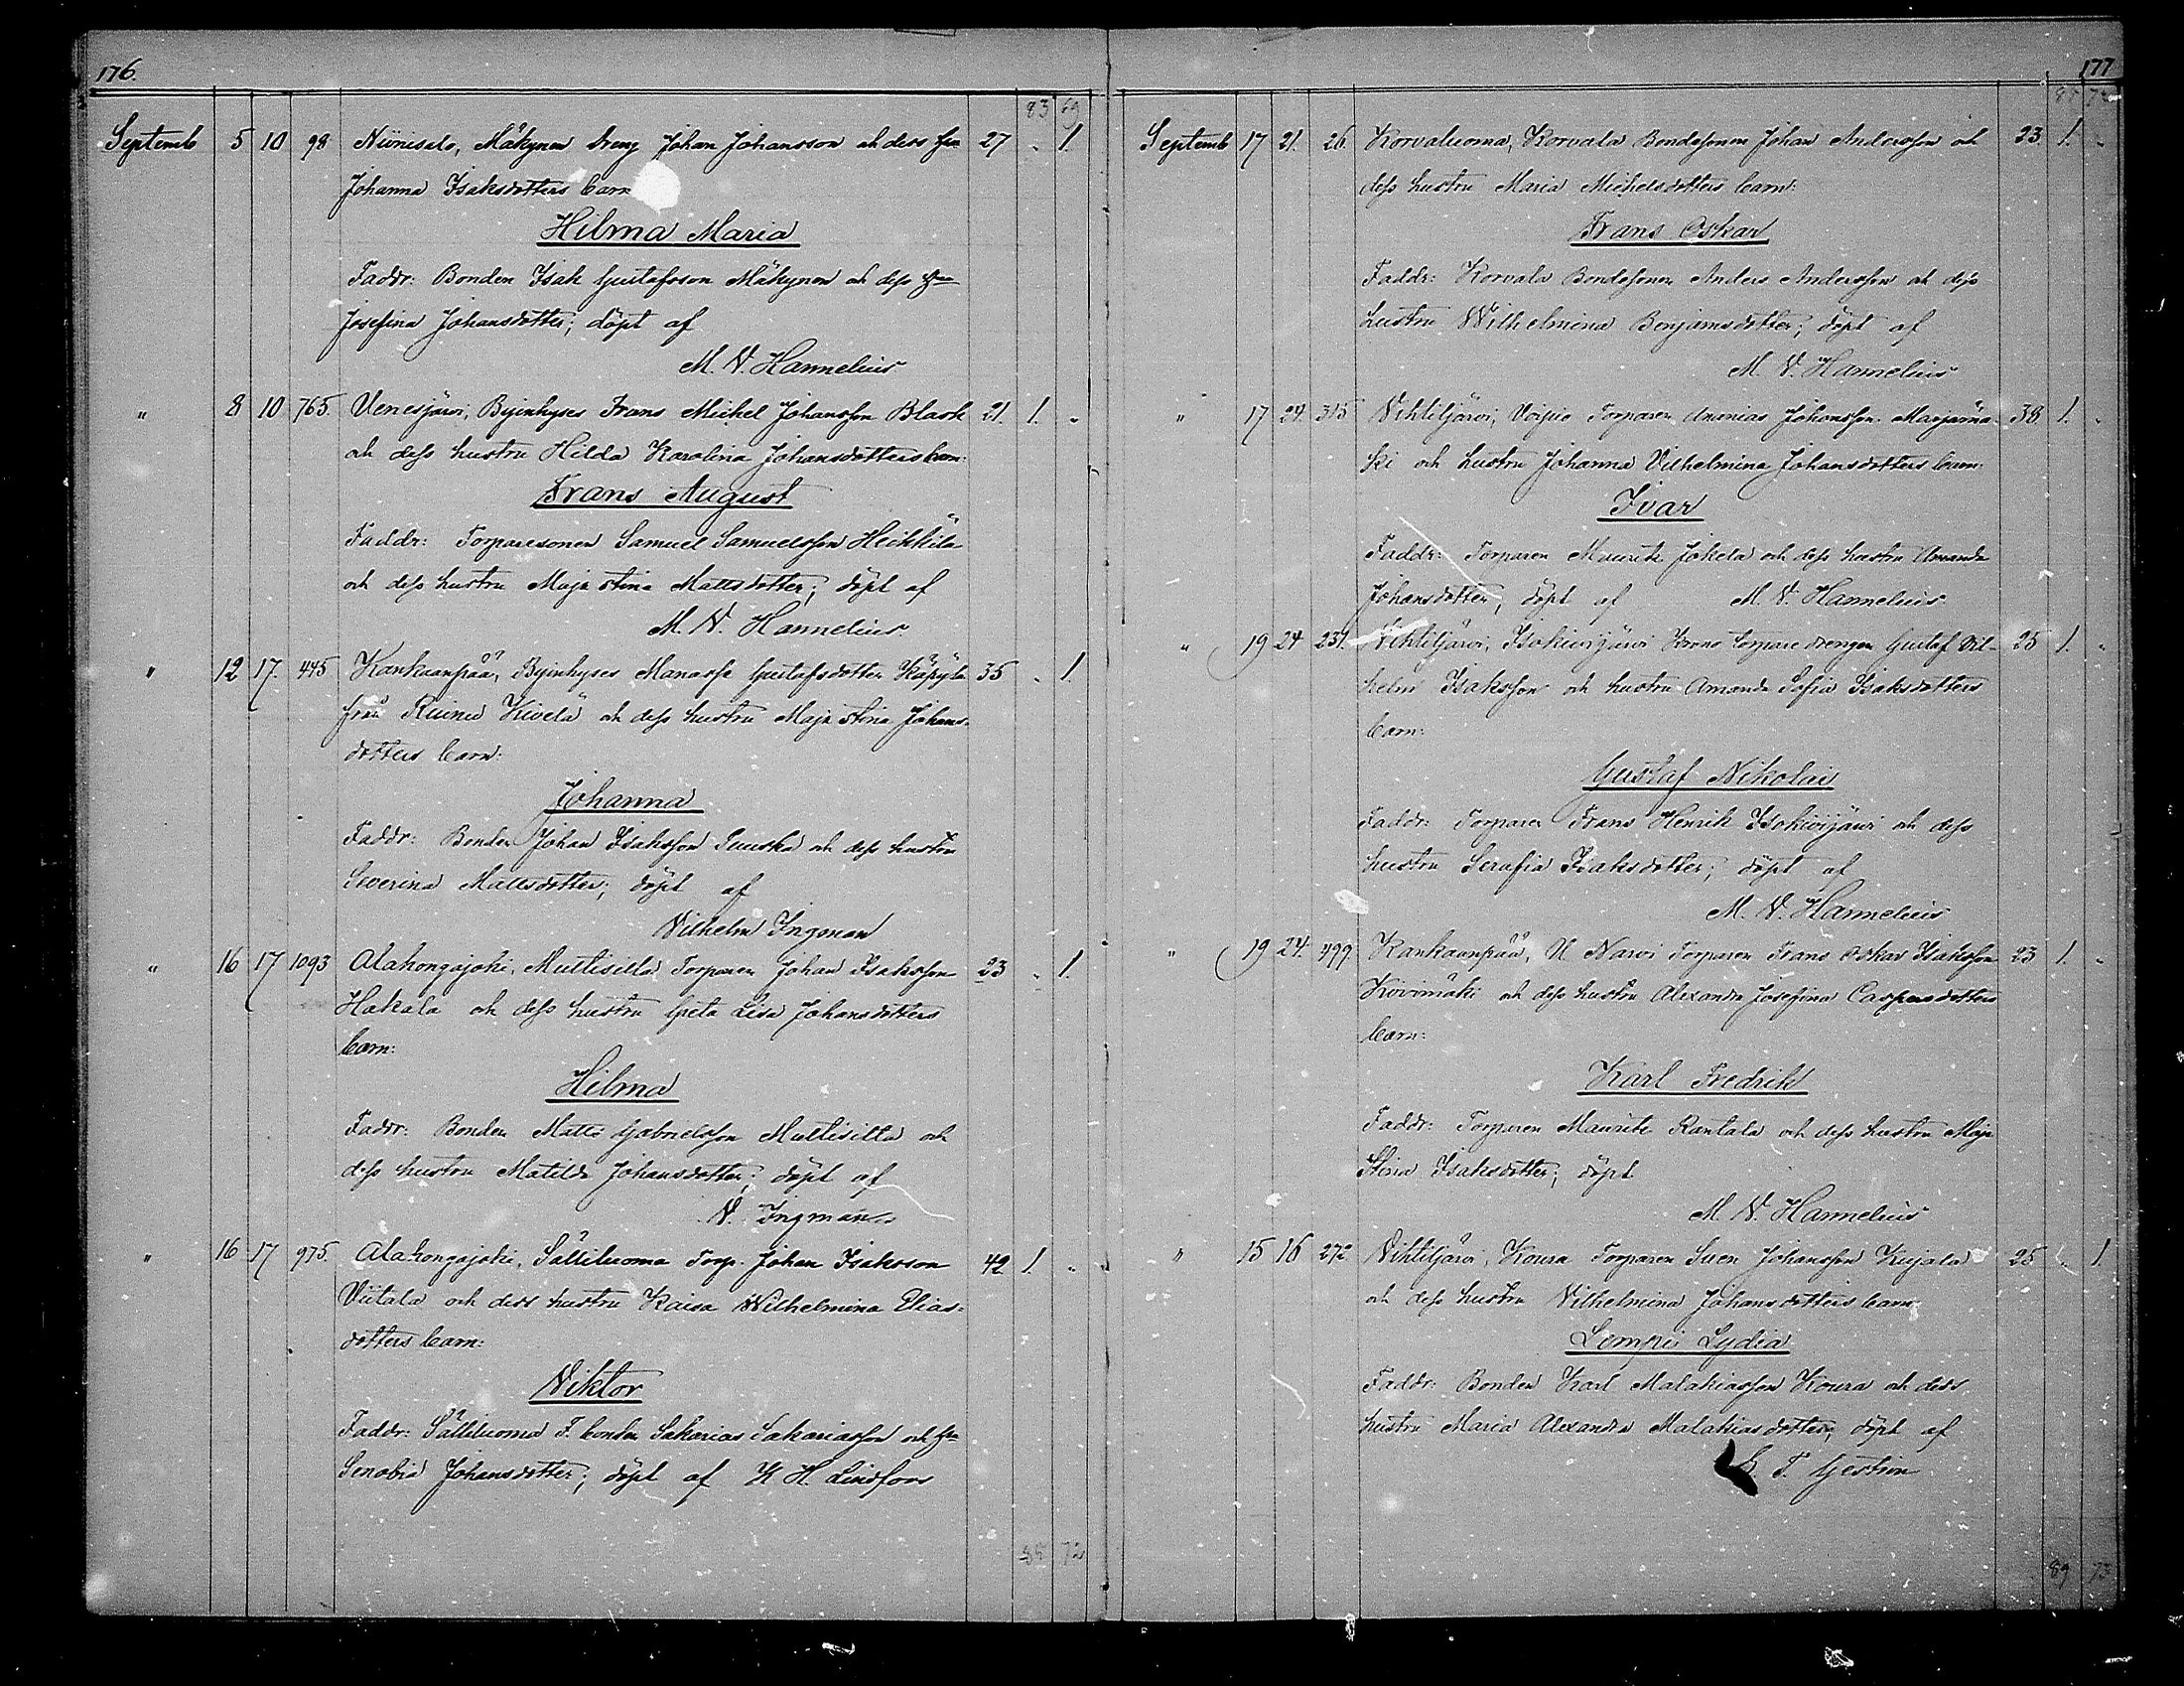 176.
83 69
Septemb 5 10 98 Niinisalo, Mäkynen dreng Johan Johansson och dess hu 27 „ 1.
Johanna Isaksdotters barn
Hilma Maria
Faddr: Bonden Isak Gustafsson Mäkynen och dess hu
Josefina Johansdotter; döpt af
M. V. Hannelius
„ 8 10 765. Venesjärvi, Byinhyses Frans Mickel Johansson Blask 21. 1. „
och dess hustru Hilda Karolina Johansdotters barn:
Frans August
Faddr: Torparesonen Samuel Samuelsson Heikkilä
och dess hustru Maja Stina Mattsdotter; döpt af
M. V. Hannelius
„ 12 17. 445 Kankaanpää, Byinhyses Manasse Gustafsdotter Käpylä 35 „ 1.
från Kivelä och dess hustru Maja Stina Johans-
dotters barn:
Johanna
Faddr: Bonden Johan Isaksson och dess hustru
Severina Mattsdotter; döpt af
Vilhelm Ingman
„ 16 17 1093 Alahongajoki, Multisilta Torparen Johan Isaksson 23 „ 1.
Hakala och dess hustru Greta Lisa Johansdotters
barn:
Hilma
Faddr: Bonden Matts Gabrielsson Multisilta och
dess hustru Matilda Johansdotter; döpt af
V. Ingman
„ 16 17 975. Alahongajoki, Sälliluoma Torp. Johan Isaksson 42 1. „
Viitala och dess hustru Kaisa Wilhelmina Elias-
dotters barn:
Viktor
Faddr: Sälliluoma F. bonden Sakarias Sakariasson och hu
Senobia Johansdotter; döpt af K. H. Lindfors
85 72
177
85 72
Septemb 17 21. 26. Korvaluoma, Korvala Bondesonen Johan Andersson och 23. 1. „
dess hustru Maria Mickelsdotters barn:
Frans Oskar
Faddr: Korvala Bondesonen Anders Andersson och dess
hustru Wilhelmina Benjamsdotter; döpt af
M. V. Hannelius
„ 17 24. 315 Vihtiljärvi, Voipio Torparen Ananias Johansson Marjamä- 38. 1. „
ki och hustru Johanna Vilhelmina Johansdotters barn:
Ivar
Faddr: Torparen Maurits Jokela och dess hustru Amanda
Johansdotter, döpt af M. V. Hannelius
„ 19 24 231. Vihtiljärvi, Isokivijärvi Krono torpare drengen Gustaf Vil- 25 1. „
helm Isaksson och hustru Amanda Sofia Isaksdotters
barn:
Gustaf Nikolai
Faddr: Torparen Frans Henrik Isokivijärvi och dess
hustru Serafia Isaksdotter; döpt af
M. V. Hannelius
„ 19 24. 499. Kankaanpää, N Narvi Torparen Frans Oskar Isaksson 23 1. „
Koivimäki och dess hustru Alexandra Josefina Caspersdotters
barn:
Karl Fredrik
Faddr: Torparen Maurits Rantala och dess hustru Maja
Stina Isaksdotter; döpt
M. V. Hannelius
„ 15 16 272 Vihtiljärvi, Koura Torparen Sven Johansson Kujala 25 „ 1.
och dess hustru Vilhelmina Johansdotters barn
Lempi Lydia
Faddr: Bonden Karl Malakiasson Koura och dess
hustru Maria Alexandra Malakiasdotter, döpt af
T. Gestrin
89 73